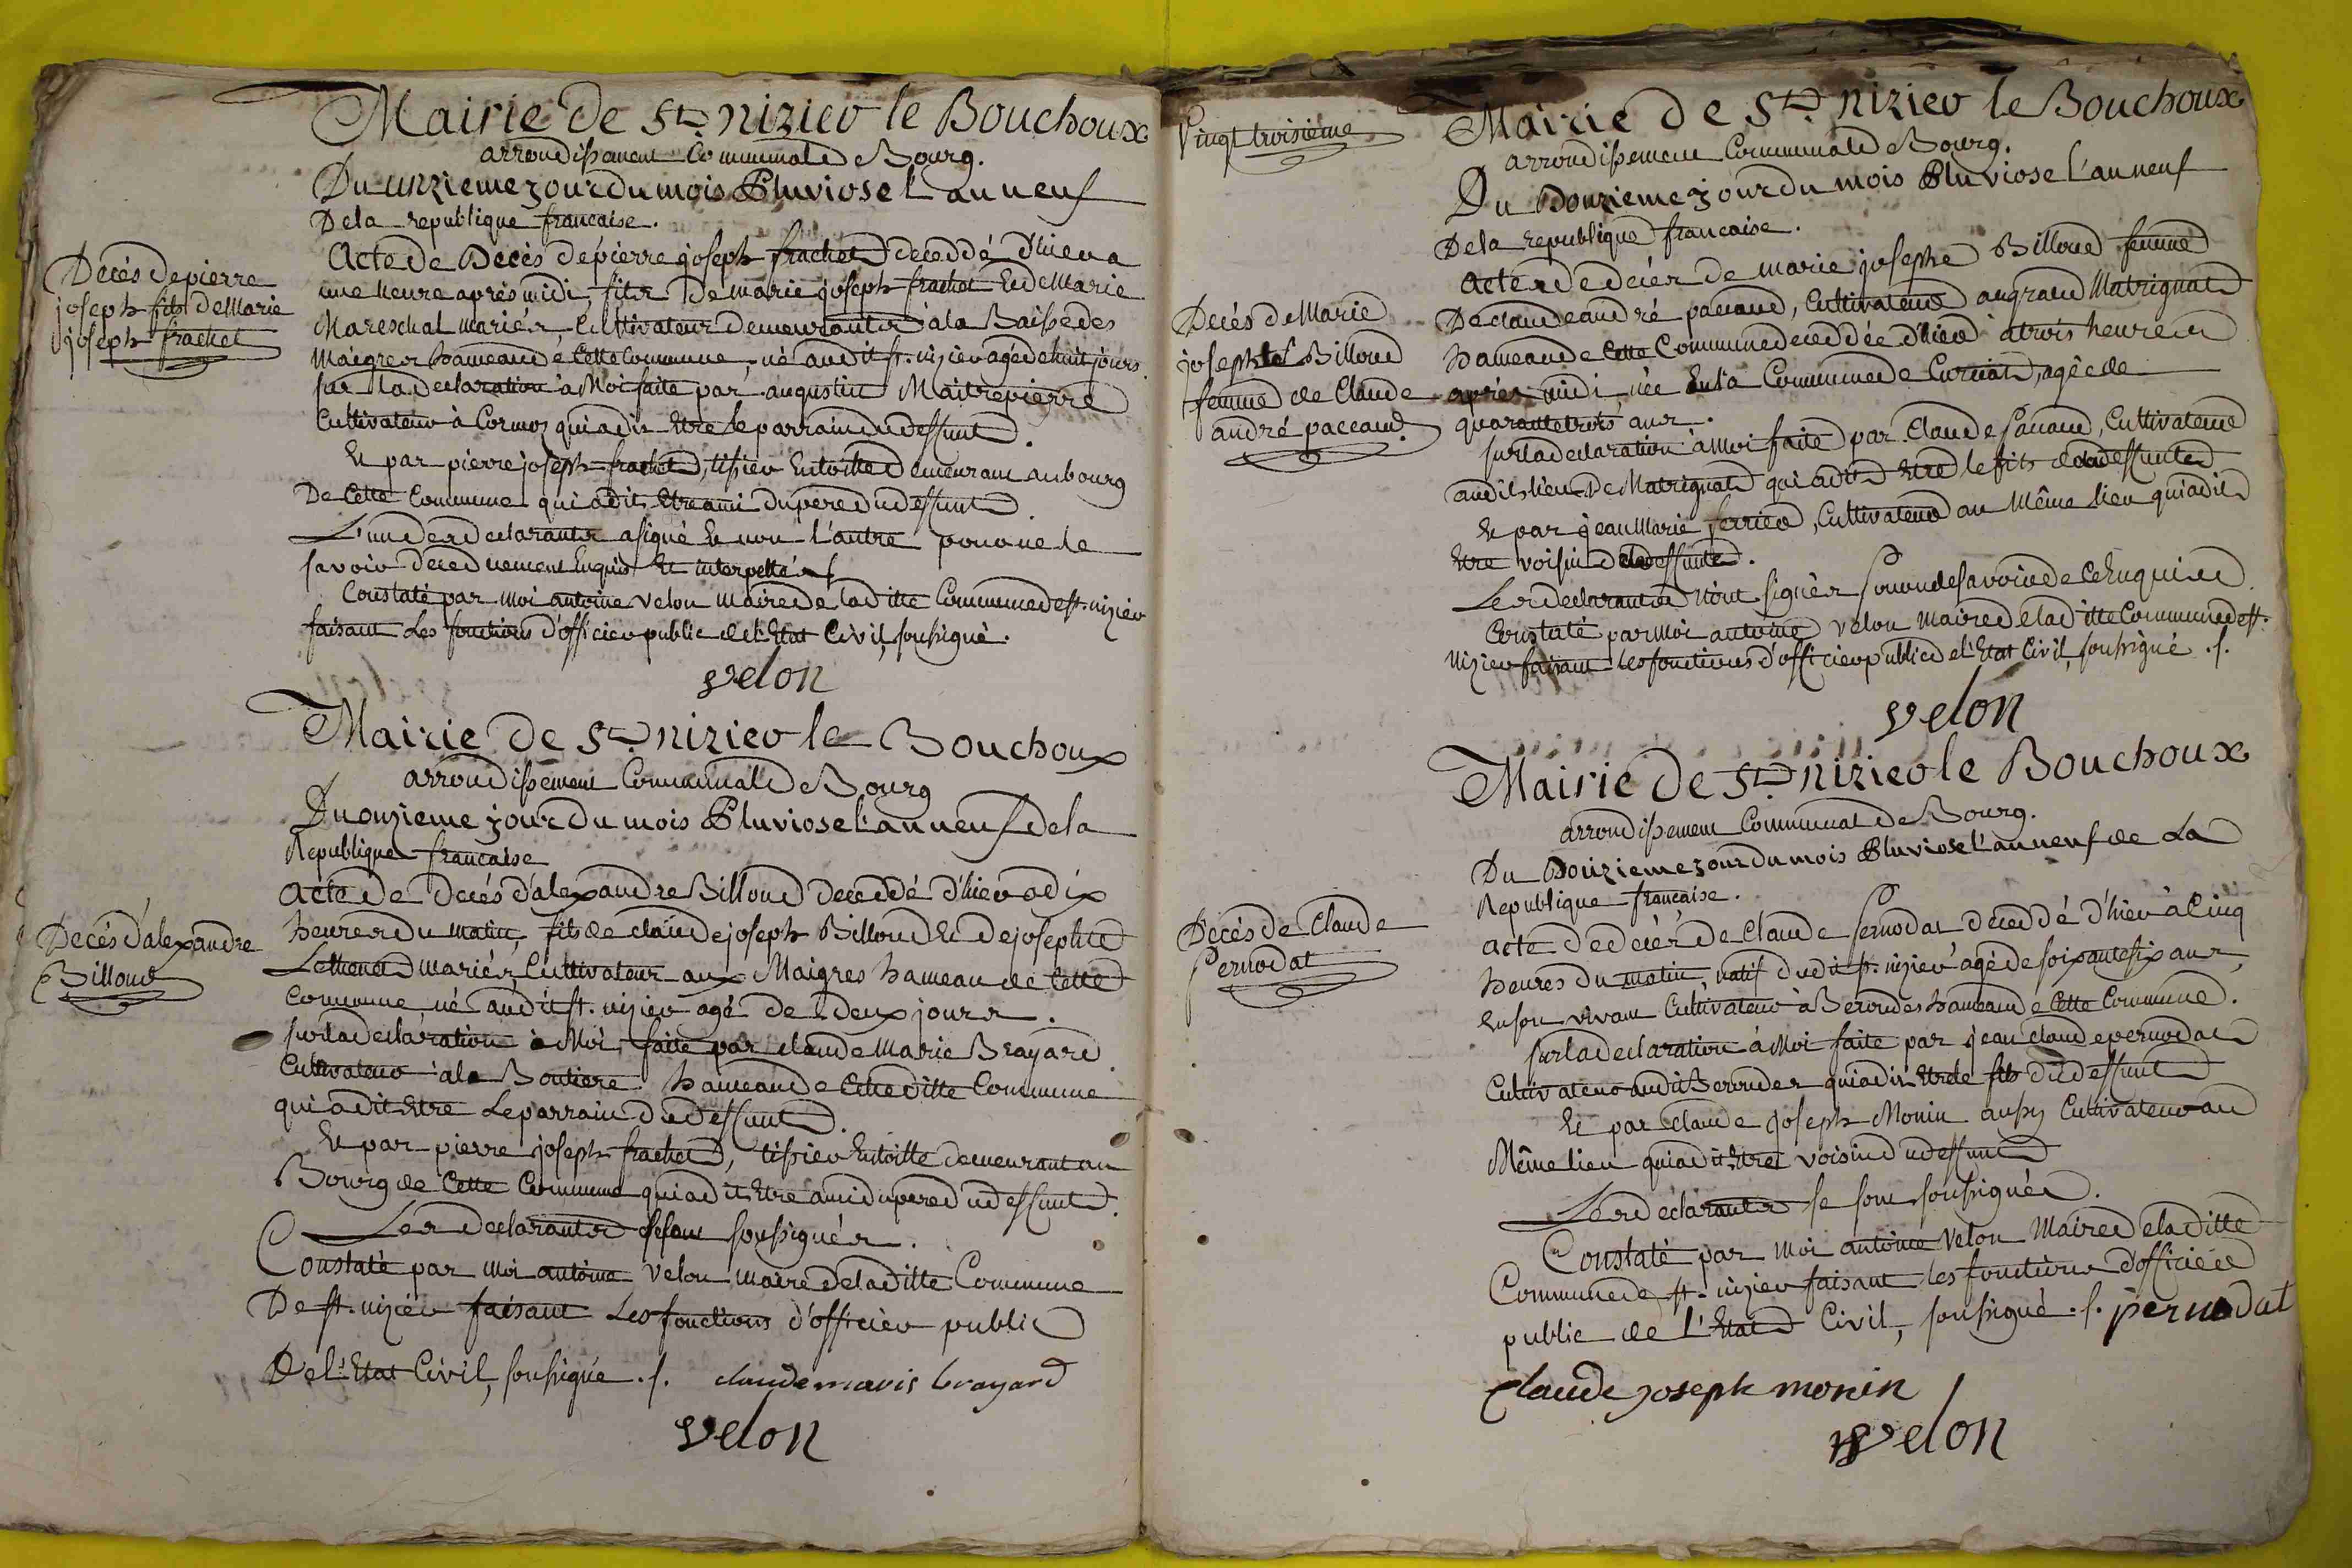 Mairie De St. nizier le Bouchoux
arrondissement Communal De Bourg.
Du unzieme jour du mois Pluviose L'an neuf
De la republique francaise.
Decés de pierre
joseph fils De Marie
joseph frachet
Acte De Decés de pierre joseph frachet deceddé d'hier a
une heure aprés midi, fils De marie joseph frachet Et de Marie
Mareschal mariés, Cultivateurs demeurants à la Baisse des
Maigres hameau de Cette Commune, né audit st. nizier agé de huit jours.
sur la declaration à Moi faite par augustin Maitrepierre
Cultivateur à Cormoz qui a dit Etre le parrain du deffunt.
Et par pierre joseph frachet, tissier En toille demeurant au bourg
De Cette Commune qui a dit Etre ami du pere du deffunt.
L'un des declarants a signé Et non l'autre pour ne le
savoir de ce duement Enquis Et interpellé
Constaté par moi antoine velon maire de laditte Commune de st. nizier
faisant Les fonctions d'officier public de l'Etat Civil, soussigné.
velon
Mairie De St. nizier le Bouchoux
arrondissement Communal de Bourg
Du onzieme jour Du mois Pluviose L'an neuf de la
Republique francaise
Decés d'alexandre
Billoud
acte de decés d'alexandre Billoud deceddé d'hier a dix
heures du matin, fils de claude joseph Billoud Et de josephte
mariés, Cultivateurs aux Maigres hameau de Cette
Commune, né audit st. nizier agé de deux jours.
sur la declaration à Moi faite par claude Marie Brayard
Cultivateur à la Boutiere hameau de Cette ditte Commune
qui a dit Etre Le parrain du deffunt.
Et par pierre joseph frachet, tissier En toille demeurant au
Bourg de Cette Commune qui a dit Etre ami du pere du deffunt.
Les declarants se sont soussignés.
Constaté par moi antoine velon maire de laditte Commune
De st. nizier faisant Les fonctions d'officier public
De l'Etat Civil, soussigné. claude marie brayard
velon
Vingt troisieme
Mairie De St. nizier le Bouchoux
arrondissement Communal de Bourg.
Du Douzieme jour du mois Pluviose L'an neuf
De la republique francaise.
Decés de Marie
josephte Billoud
femme de Claude
andré paccaud
Acte de decés de marie josephe Billoud femme
De claude andré paccaud, Cultivateur au grand Matrignat
hameau de Cette Commune deceddée d'hier à trois heures
aprés midi née En la Commune de Curciat, agée de
quarante trois ans.
sur la declaration à Moi faite par Claude Pacaud, Cultivateur
audit lieu De Matrignat qui a dit Etre le fils de la deffunte
Et par jean Marie ferrier, Cultivateur au Même lieu qui a dit
Etre voisin de la deffunte.
Les declarants n'ont signés Pour ne le savoir de ce Enquis
Constaté par Moi antoine velon maire de laditte Commune de st.
nizier faisant les fonctions d'officier public de l'Etat Civil, soussigné.
velon
Mairie De St. nizier le Bouchoux
arrondissement Communal de Bourg.
Du Douzieme jour du mois Pluviose L'an neuf de La
Republique francaise.
Decés de Claude
Pernodat
acte de decés de Claude Pernodat deceddé d'hier à Cinq
heures du matin, natif dudit st. nizier agé de soixante six ans,
En son vivant Cultivateur à Beroudes hameau de Cette Commune.
sur la declaration à Moi faite par jean claude pernodat
Cultivateur audit Beroudes qui a dit Etre le fils du deffunt
Et par Claude joseph Monin aussy Cultivateur au
Même lieu qui a dit Etre voisin du deffunt
Les declarants se sont soussignés.
Constaté par Moi antoine velon Maire de laditte
Commune de st. nizier faisant les fonctions d'officier
public de L'Etat Civil, soussigné. pernodat
Claude joseph monin
velon